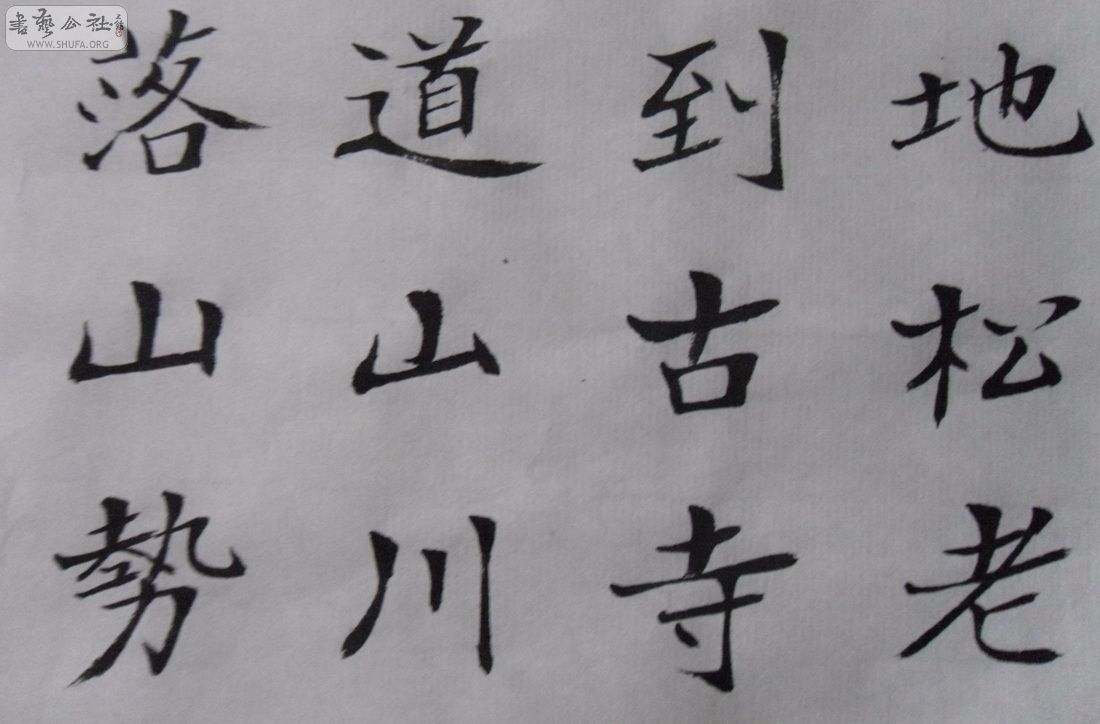 地松老
到古寺
道山川
落山勢
書藝公社
WWW.SHUFA.ORG